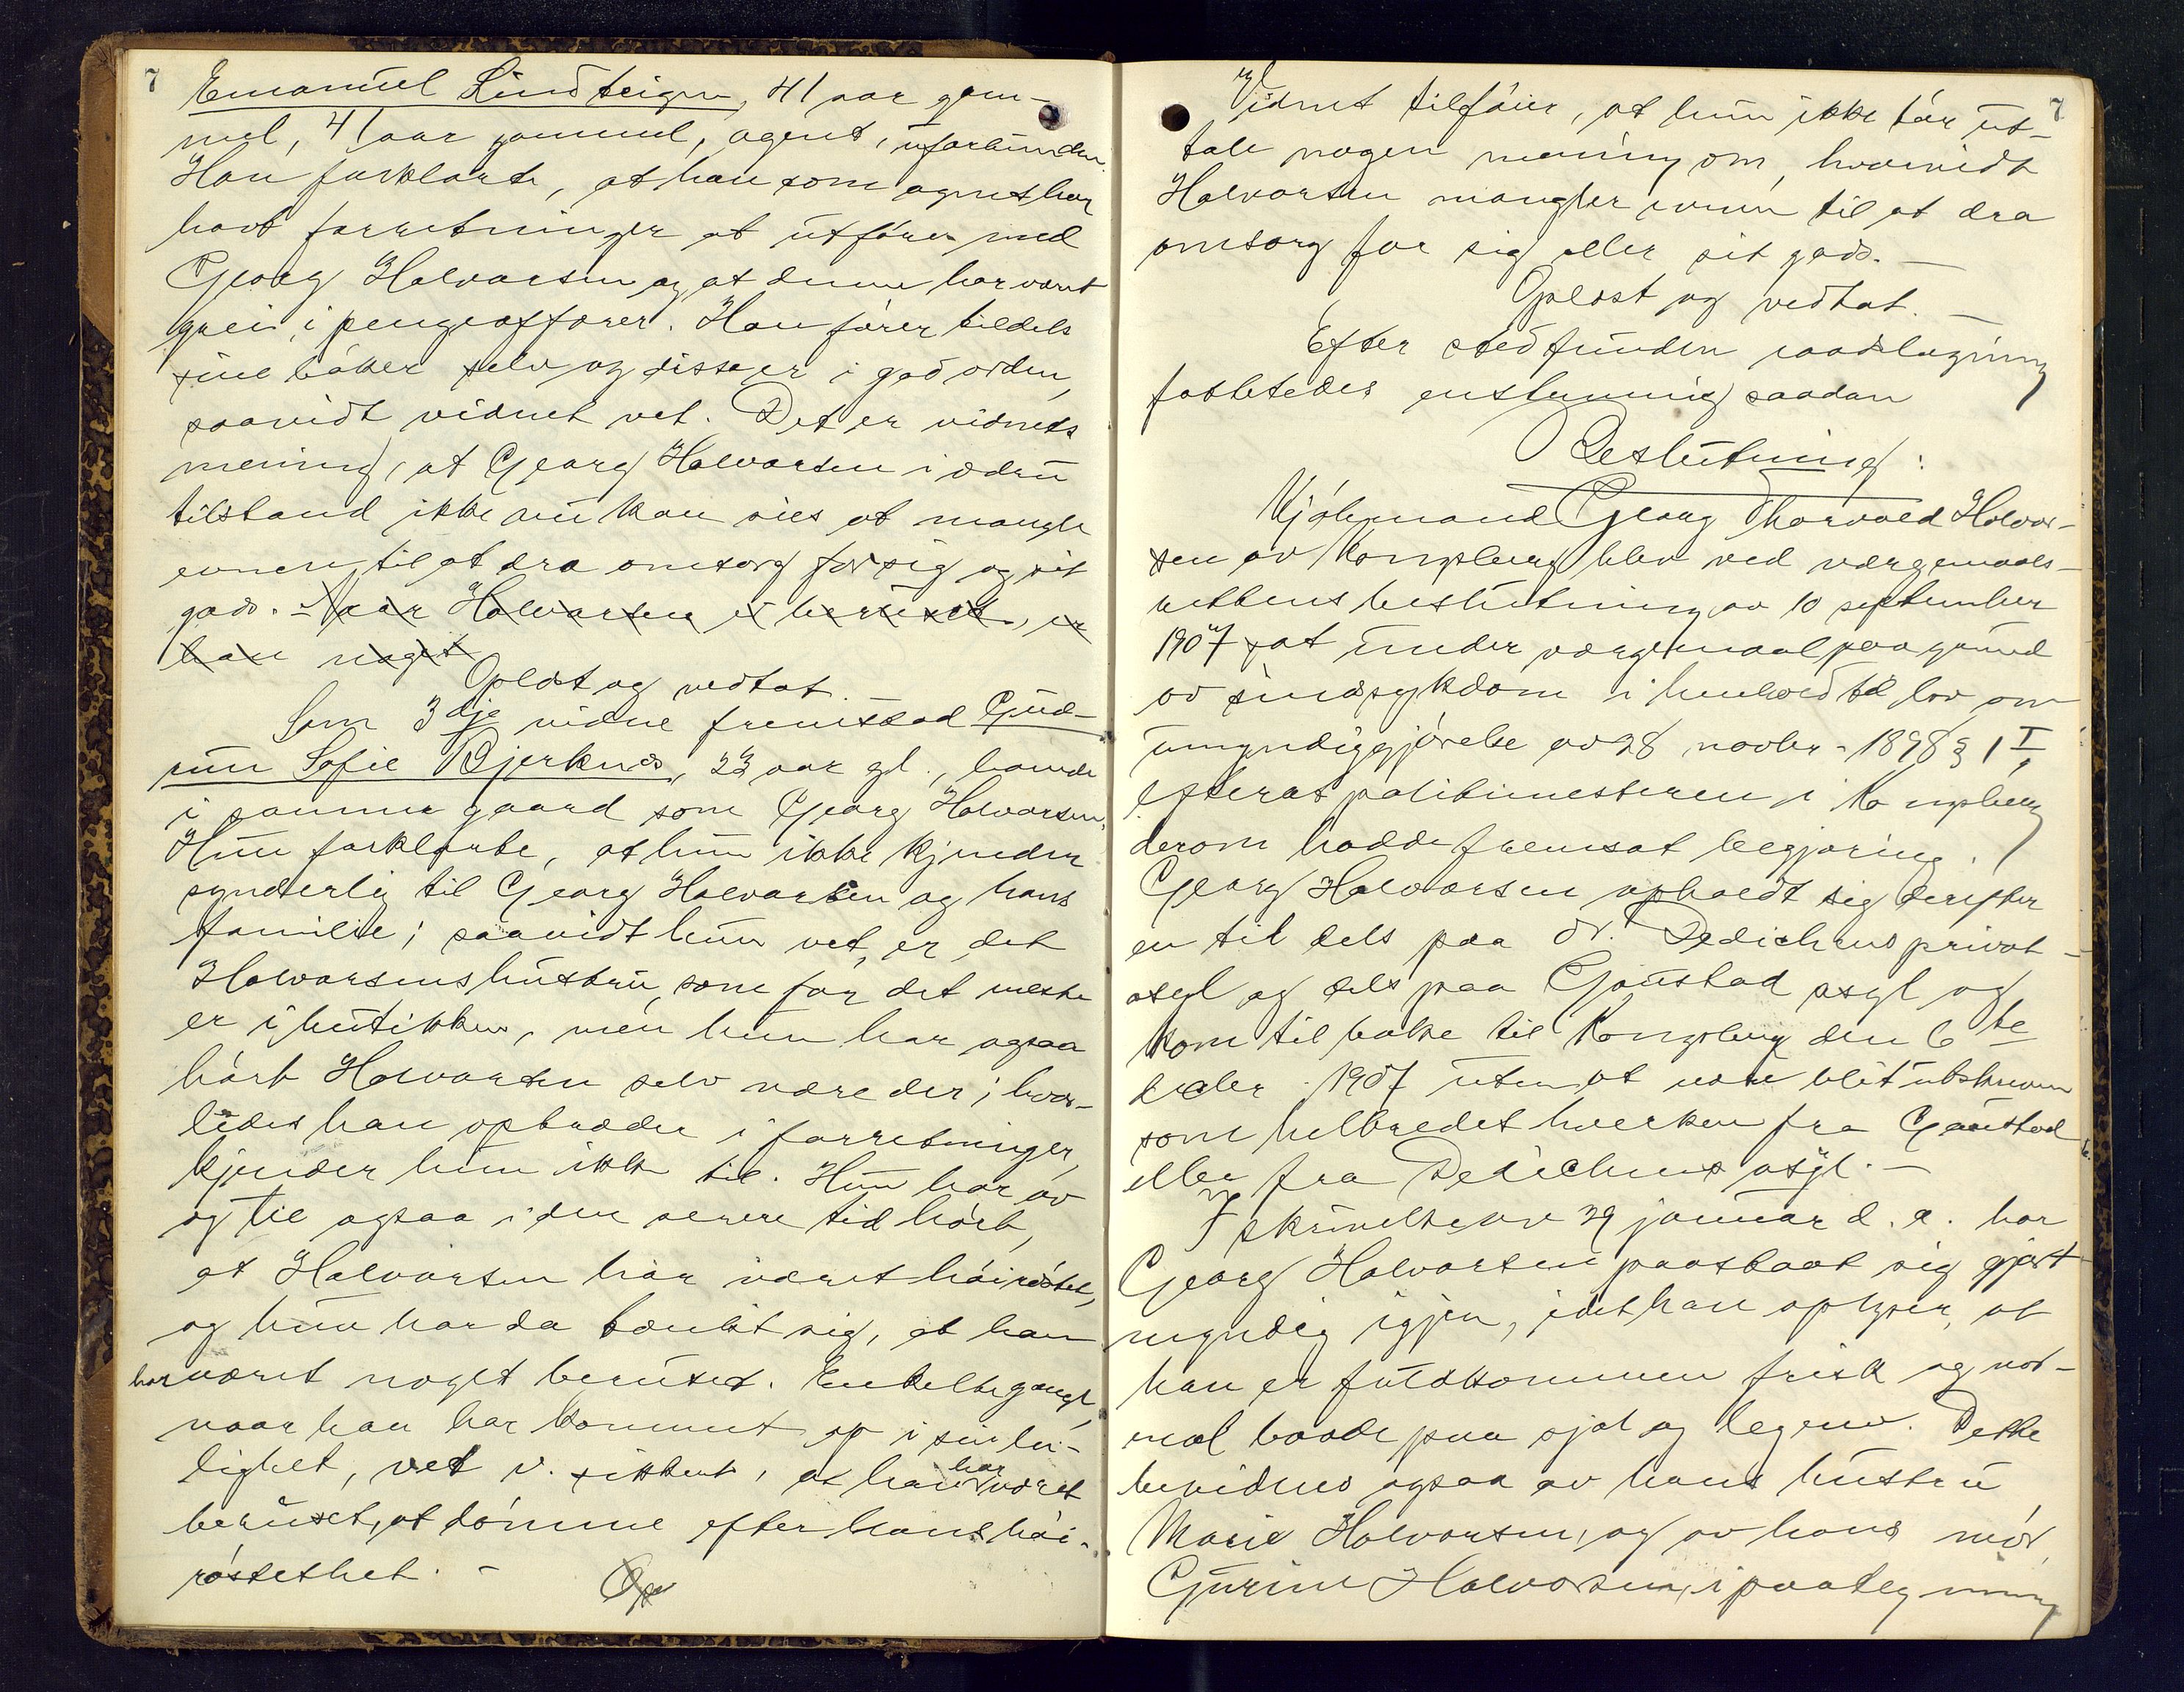 7
Emanuel Lindteigen, 41 aar gam-
mel, 41 aar gammel, agent, uforbunden.
Han forklarte, at han som agent har
havt forretninger at utføre med
Georg Halvorsen og at denne har været
grei i pengeaffærer. Han fører tildels
sine bøker selv og disse er i god orden,
saavidt vidnet vet. Det er vidnets
mening, at Georg Halvorsen i ædru
tilstand ikke nu kan sies at mangle
evnen til at dra omsorg for sig og sit
gods. - Naar Halvorsen er beruset, er
han noget
Oplæst og vedtat. -
Som 3dje vidne fremstod Gud-
run Sofie Bjerknes, 23 aar gl., boende
i samme gaard som Georg Halvorsen.
Hun forklarte, at hun ikke kjender
synderlig til Georg Halvorsen og hans
familie; saavidt hun vet, er det
Halvorsens hustru, som for det meste
er i butikken, men hun har ogsaa
hørt Halvorsen selv være der; hvor-
ledes han optræder i forretninger,
kjender hun ikke til. Hun har av
og til ogsaa i den senere tid hørt,
at Halvorsen har været høirøstet,
og hun har da tænkt sig, at han
har været noget beruset. Enkelte gange,
naar han har kommet op i sin lei-
lighet, vet v. sikkert, at han har været
beruset, at dømme efter hans høi-
røstethet. -
Op
7
Vidnet tilføier, at hun ikke tør ut-
tale nogen mening om, hvorvidt
Halvorsen mangler evnen til at dra
omsorg for sig eller sit gods. -
Oplæst og vedtat. -
Efter stedfunden raadslagning
fattedes enstemmig saadan
Beslutning:
Kjøbmand Georg Thorvald Halvor-
sen av Kongsberg blev ved værgemaals-
rettens beslutning av 10 september
1907 sat under værgemaal paa grund
av sindssykdom i henhold til lov om
umyndiggjørelse av 28 novbr. 1898 § 1 I,
efterat politimesteren i Kongsberg
derom hadde fremsat begjæring.
Georg Halvorsen opholdt sig derefter
en tid dels paa dr. Dedichens privat-
asyl og dels paa Gaustad asyl og
kom tilbake til Kongsberg den 6te
decbr. 1907 uten at være blit utskreven
som helbredet hverken fra Gaustad
eller fra Dedichens asyl. -
I skrivelse av 29 januar d. a. har
Georg Halvorsen paastaat sig gjort
myndig igjen, idet han oplyser, at
han er fuldkommen frisk og nor-
mal baade paa sjæl og legeme. Dette
bevidnes ogsaa av hans hustru
Marie Halvorsen, og av hans mor,
Gurine Halvorsen, i paategning